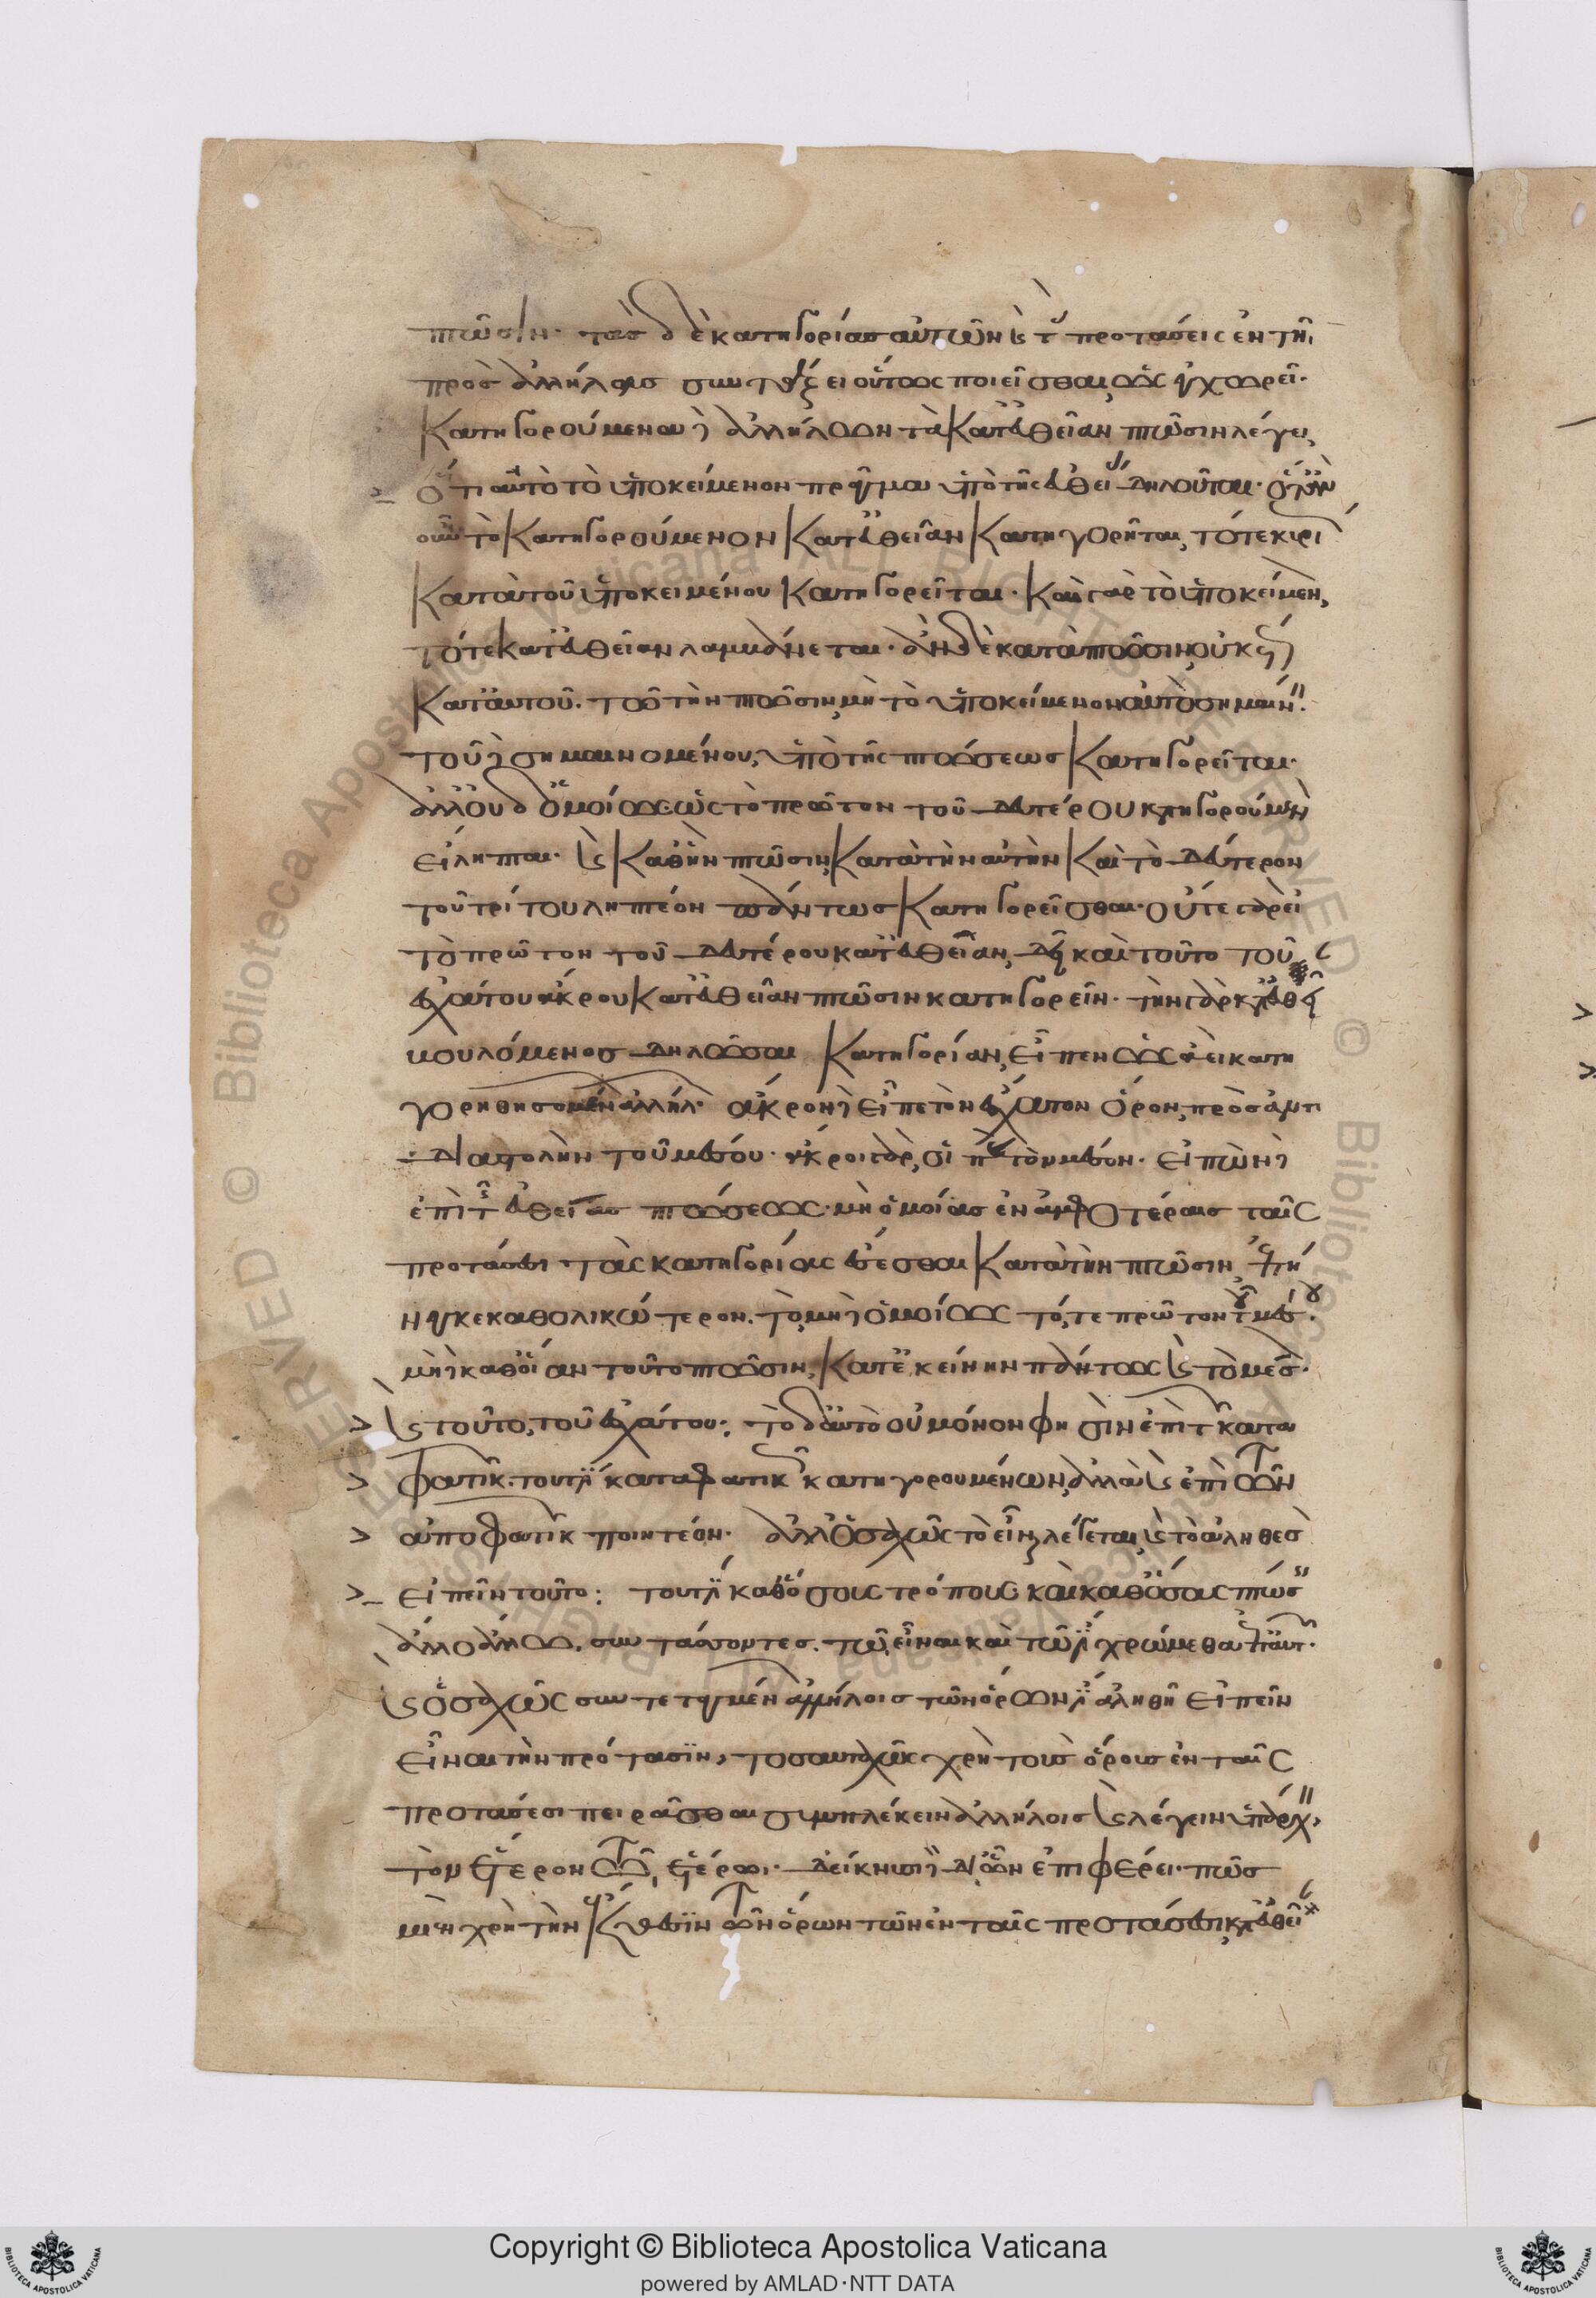 πτῶσιν. τὰς δὲ κατηγορίας αὐτῶν προτάσεις ἐν τῆι
πρὸς ἀλλήλας συντάξει οὕτως ποιεῖσθαι, ὡς ἐγχωρεῖ.
κατηγορούμενα δὲ ἀλλήλων τὰ κατ' εὐθεῖαν πτῶσιν λέγει,
ὅτι αὐτὸ τὸ ὑποκείμενον πρᾶγμα ὑπὸ τῆς εὐθεί δηλοῦται.
οὖν τὸ κατηγορούμενον κατ' εὐθεῖαν κατηγορῆται, τότε
κατὰ τοῦ ὑποκειμένου κατηγορεῖται. καὶ γὰρ τὸ ὑποκείμεν
τότε κατ' εὐθεῖαν λαμβάνεται. ἂν δὲ κατὰ πτῶσιν, οὐκ
κατ' αὐτοῦ. τῶ τὴν πτῶσιν, μὴ τὸ ὑποκείμενον αὐτὸ σημαίν
τοῦ δὲ σημαινομένου, ὑπὸ τῆς πτώσεως κατηγορεῖται.
ἀλλ' οὐδ' ὁμοίως ὡς τὸ πρῶτον τοῦ δευτέρου κατηγορούμεν
εἴληπται. καθ' ἣν πτῶσιν, κατὰ τὴν αὐτὴν καὶ τὸ δεύτερον
τοῦ τρίτου ληπτέον πάντως κατηγορεῖσθαι. οὔτε γὰρ εἰ
τὸ πρῶτον τοῦ δευτέρου κατ' εὐθεῖαν, δεῖ καὶ τοῦτο τοῦ
ἐσχάτου ἄκρου κατ' εὐθεῖαν πτῶσιν κατηγορεῖν. τὴν γὰρ κατ' εὐθεῖ
βουλόμενος δηλῶσαι κατηγορίαν, εἶπεν ὡς ἀεὶ κατη
γορηθησομέν ἀλλήλ ἄκρον δὲ εἶπε τὸν ἔσχατον ὅρον, πρὸς ἀντι
διαστολὴν τοῦ μέσου. ἄκροι γὰρ, οἱ τὸν μέσον. εἰπὼν δὲ
ἐπὶ τ εὐθείας πτώσεως. μὴ ὁμοίας ἐν ἀμφοτέραις ταῖς
προτάσεσι τὰς κατηγορίας ἔσεσθαι κατὰ τὴν πτῶσιν,
ἤνεγκε καθολικώτερον. τὸ, μὴ δὲ ὁμοίως τό, τε πρῶτον τοῦ μέσου.
μὴ δὲ καθ' οἵαν τοῦτο πτῶσιν, κατ' ἐκείνην πάντως τὸ μεσ.
τοῦτο, τοῦ ἐσχάτου: τὸ δ' αὐτὸ οὐ μόνον φησὶν ἐπὶ τ κατα
φατικ. τουτέστι καταφατικ κατηγορουμένων, ἀλλὰ ἐπὶ τῶν
ἀποφατικ ποιητέον. ἀλλ' ὁσαχῶς τὸ εἶναι λέγεται, τὸ ἀληθὲς
εἰπεῖν τοῦτο: τουτέστι καθ' ὅσους τρόπους καὶ καθ' ὅσας πτώσ
ἄλλο ἄλλω, συντάσσοντες. τῶ εἶναι καὶ τῶ ἔστι χρώμεθα
ὁσαχῶς συντεταγμέν ἀλλήλοις τῶν ὅρων ἔστι ἀληθῆ εἰπεῖν
εἶναι τὴν πρότασιν, τοσαυταχῶς χρὴ τοὺς ὅρους ἐν ταῖς
προτάσεσι πειρᾶσθαι συμπλέκειν ἀλλήλοις λέγειν ὑπάρχ,
τὸν ἕτερον τῶ ἑτέρωι. δείκνυσι δὲ δι' ὧν ἐπιφέρει. πῶς
μὲν χρὴ τὴν ἔκθεσιν τῶν ὅρων τῶν ἐν ταῖς προτάσεσι, κατ' εὐθεῖ